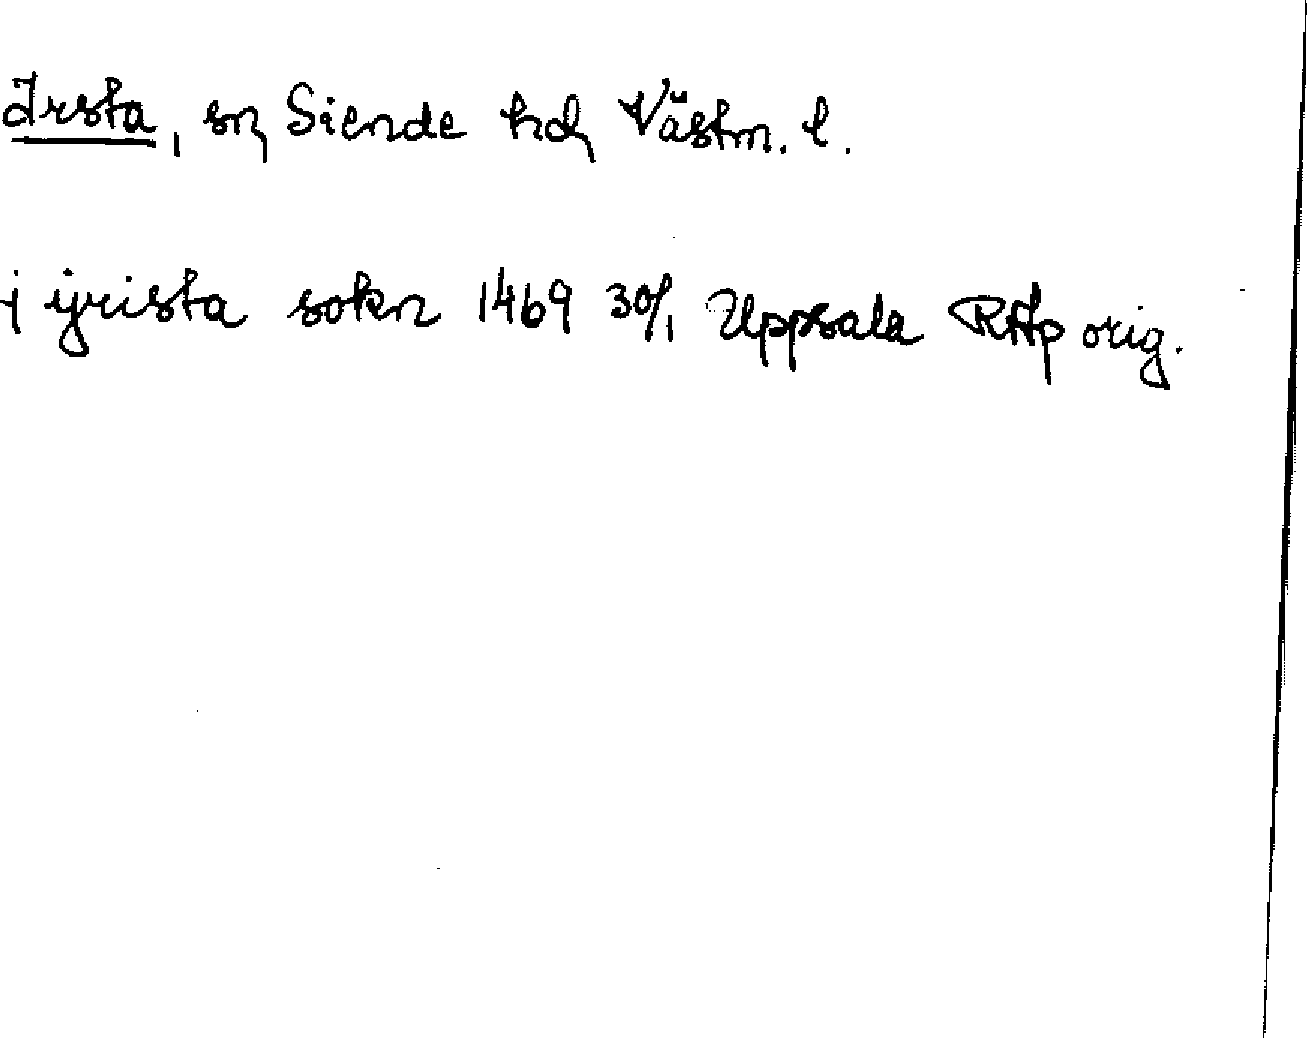 Irsta, sn, Siende hd, Västm. l.
j ÿrista sokn 1469 30/1 Uppsala RAp orig.